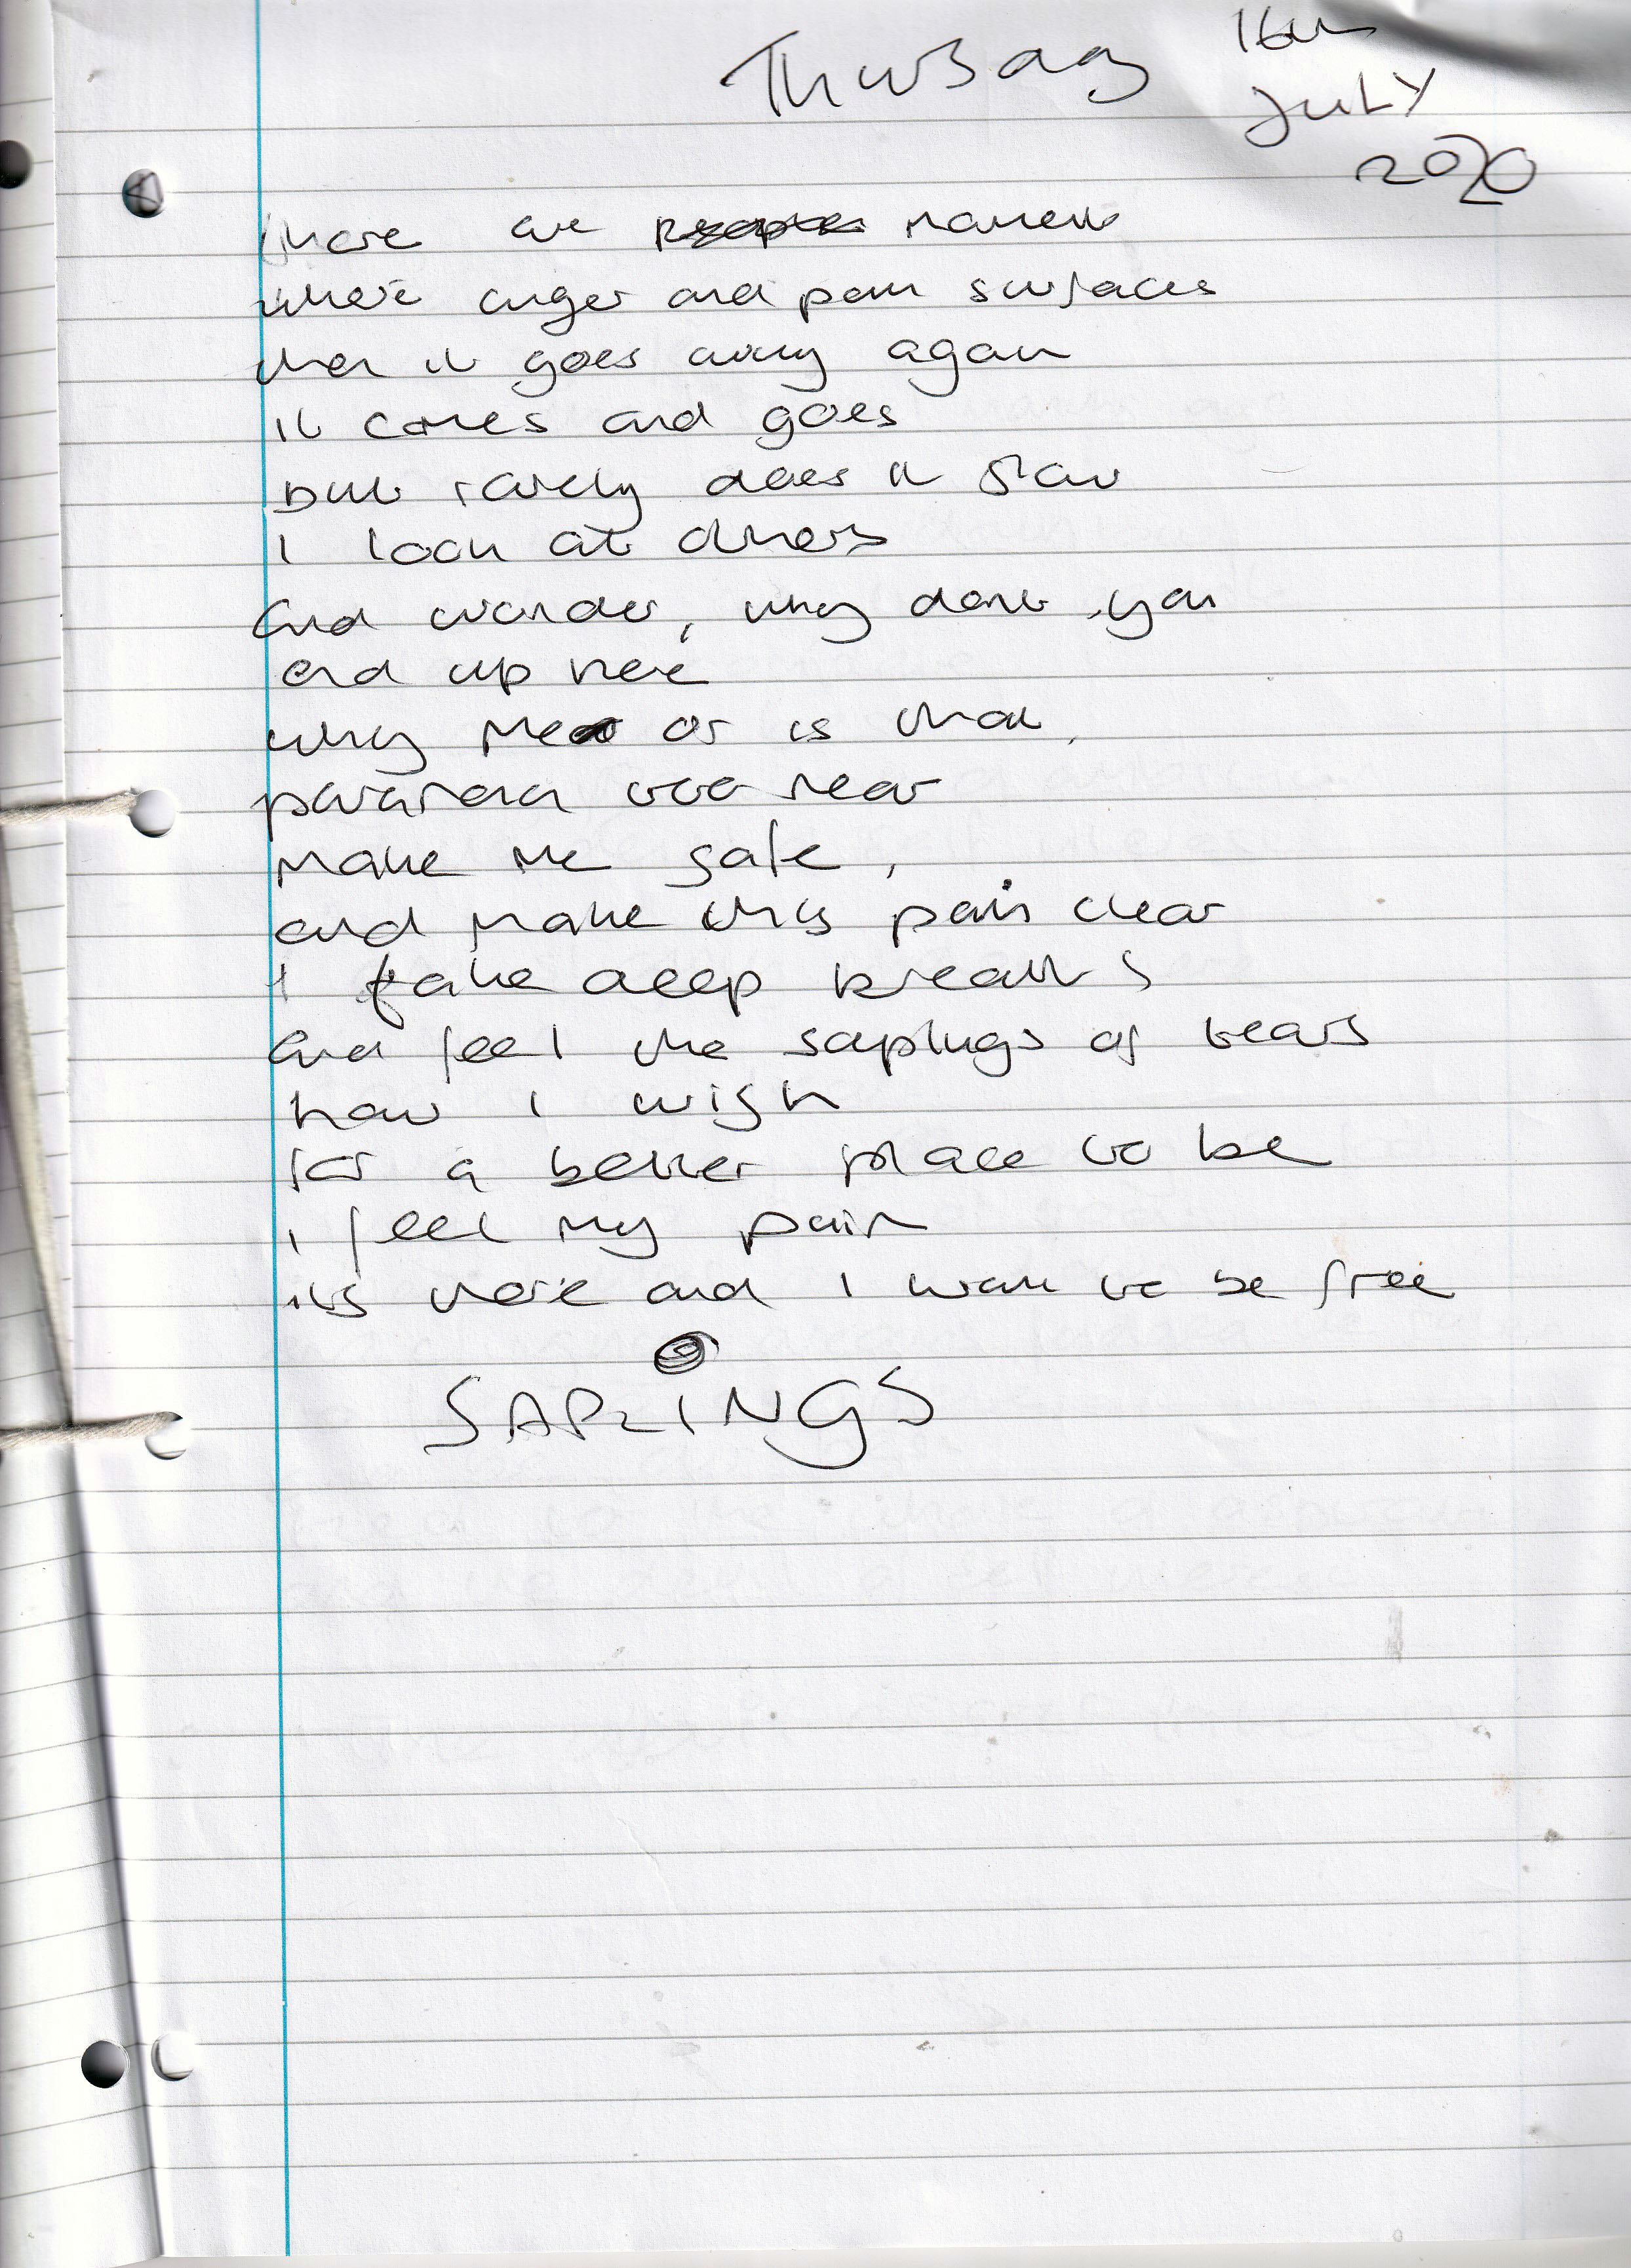 Thursday 16th
July
2020
there are moments
where anger and pain surfaces
then it goes away again
it comes and goes
but rarely does it stay
I look at others
and wonder, why dont you
end up here
why me or is that,
paranoia too near
make me safe,
and make this pain clear
I take deep breaths
and feel the saplings of tears
how I wish
for a better place to be
I feel my pain
its there and I want to be free
SAPLiNGS